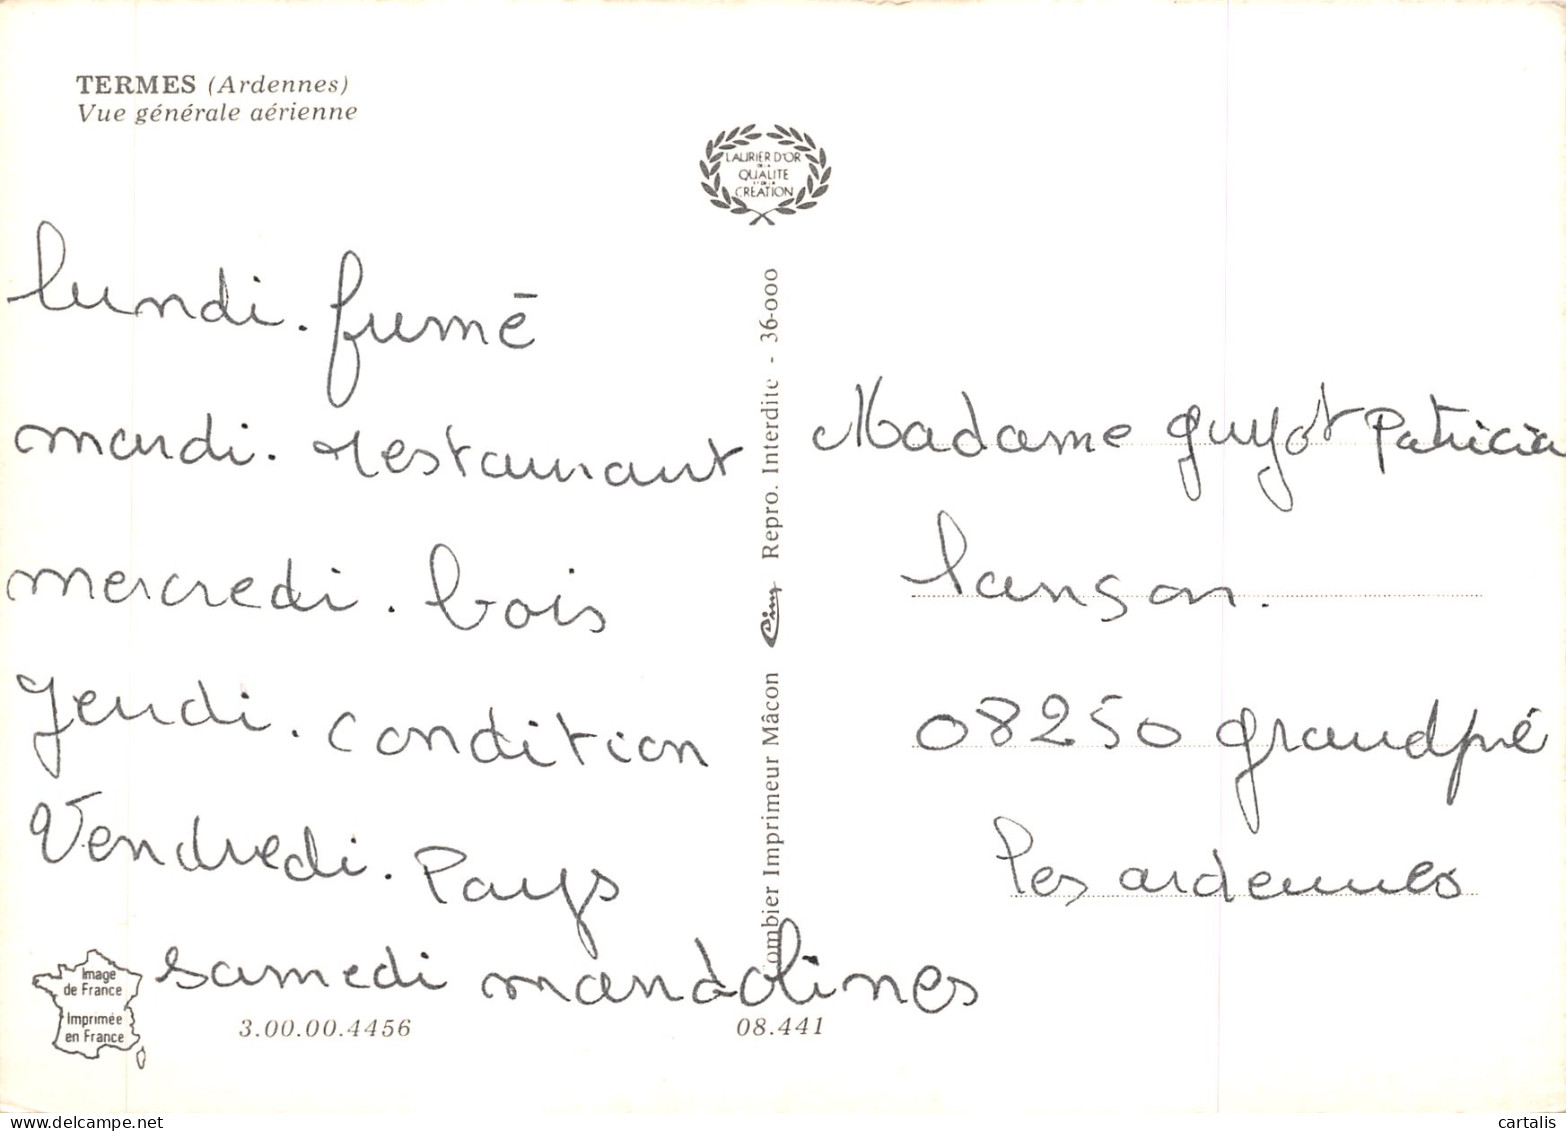 TERMES (Ardennes)
Vue générale aérienne
LAURIER D'OR
DE LA
QUALITE
ET DE LA
CRÉATION
lundi. fumé
mardi. restaurant
mercredi. bois
Jeudi. condition
Vendredi. Pays
samedi mandolines
Combier Imprimeur Mâcon Cim Repro. Interdite - 36-000
Madame guyot Patricia
lanson.
08250 grandpré
les ardennes
Image
de France
Imprimée
en France
3.00.00.4456
08.441
cartalis